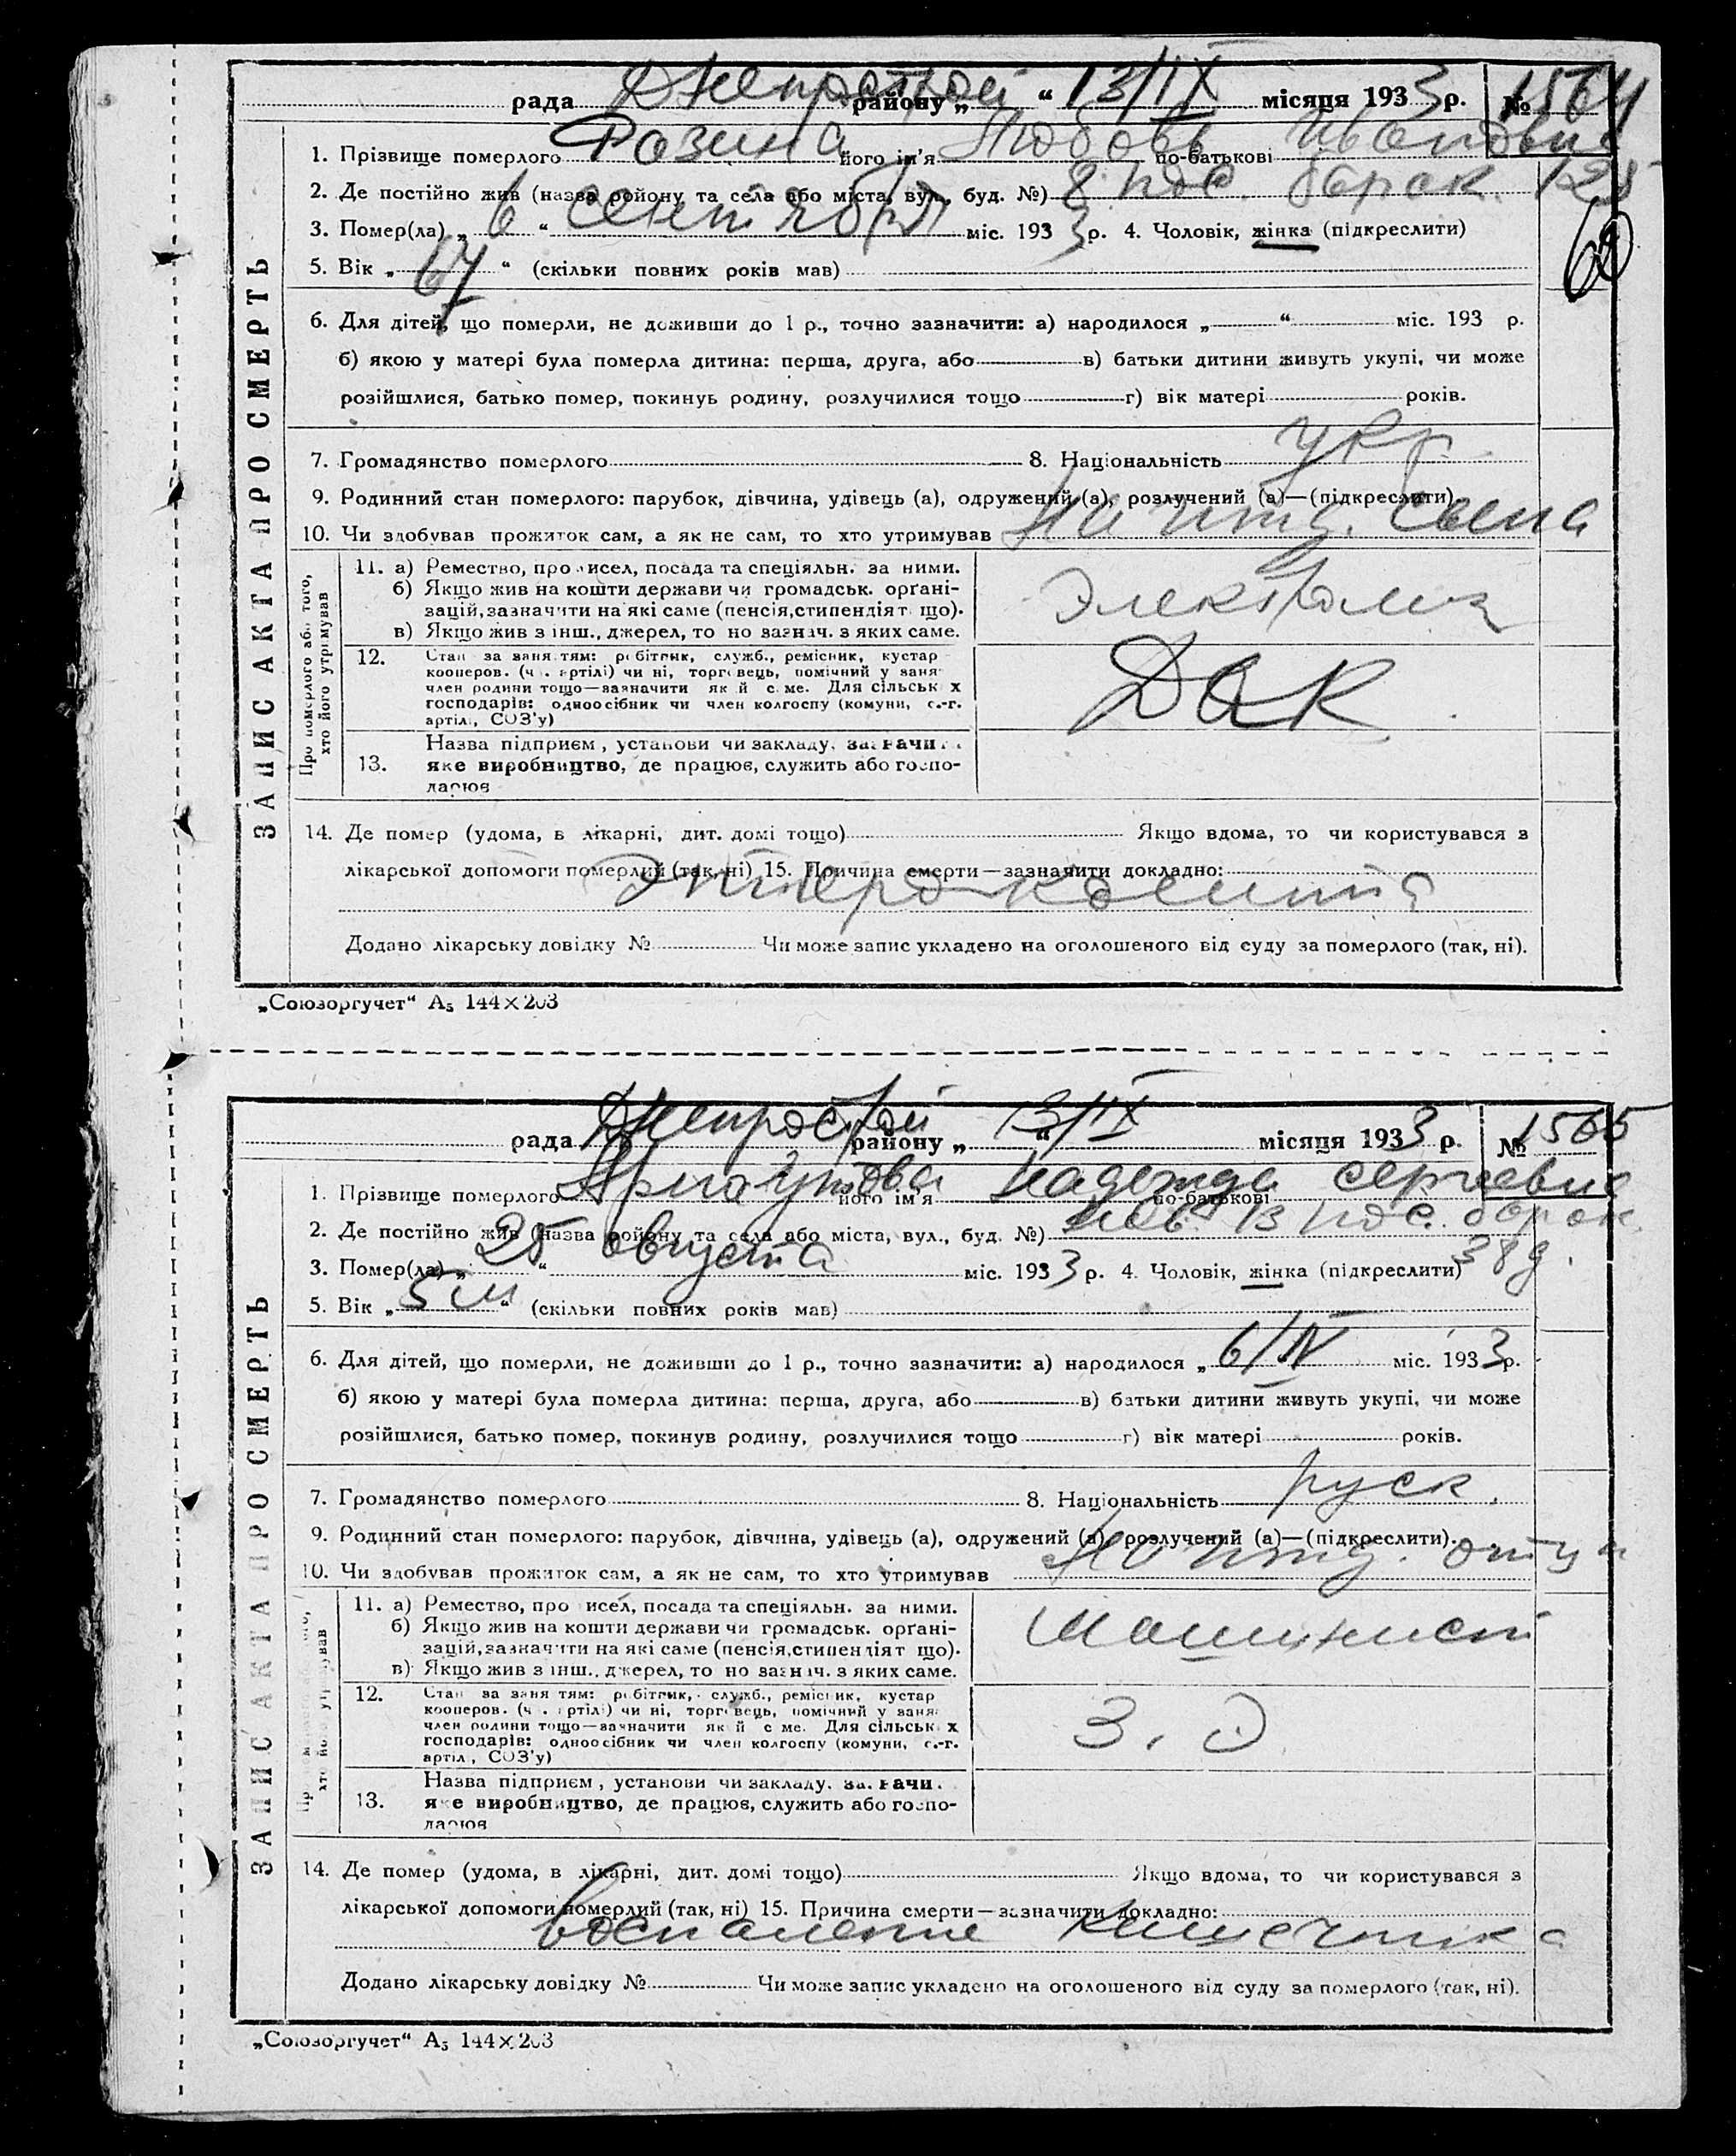 рада Днепрострой району „ “ 13/IX місяця 1933 р. № 1564
1. Прізвище померлого Розина його ім'я Любовь по-батькові Ивановна
2. Де постійно жив (назва району та села або міста, вул., буд. №) 8 пос. барак 128
3. Помер(ла) „ 6 “ сентября міс. 1933 р. 4. Чоловік, жінка (підкреслити)
60
5. Вік „ 67 “ (скільки повних років мав)
6. Для дітей, що померли, не доживши до 1 р., точно зазначити: а) народилося „ “ міс. 193 р.
б) якою у матері була померла дитина: перша, друга, або в) батьки дитини живуть укупі, чи може
розійшлися, батько помер, покинув родину, розлучилися тощо г) вік матері років.
7. Громадянство померлого 8. Національність укр
9. Родинний стан померлого: парубок, дівчина, удівець (а), одружений (а), розлучений (а)—(підкреслити)
10. Чи здобував прожиток сам, а як не сам, то хто утримував На ижд. сына
ЗАПИС АКТА ПРО СМЕРТЬ
Про померлого або того, хто його утримував
11. а) Ремество, промисел, посада та спеціяльн. за ними.
б) Якщо жив на кошти держави чи громадськ. орґані-
зацій, зазначити на які саме (пенсія, стипендія т що).
в) Якщо жив з інш., джерел, то но зазнач. з яких саме.
12. Стан за заняттям: робітник, служб., ремісник, кустар
кооперов. (ч . артілі) чи ні, торговець, помічний у заня
член родини тощо—зазначити який саме. Для сільських
господарів: одноосібник чи член колгоспу (комуни, с.-г.
артіл., СОЗ'у)
ДАК
13. Назва підприєм., установи чи закладу, зазначити
яке виробництво, де працює, служить або госпо-
дарює
14. Де помер (удома, в лікарні, дит. домі тощо) Якщо вдома, то чи користувався з
лікарської допомоги померлий (так, ні) 15. Причина смерти—зазначити докладно:
Энтероколита
Додано лікарську довідку № Чи може запис укладено на оголошеного від суду за померлого (так, ні).
„Союзоргучет“ А₅ 144×203
рада Днепрострой району „ “ 13/IX місяця 1933 р. № 1565
1. Прізвище померлого його ім'я Надежда по-батькові Сергеевна
2. Де постійно жив (назва району та села або міста, вул., буд. №) 13 пос. барак
38 д.
3. Помер(ла) „ 25 “ августа міс. 1933 р. 4. Чоловік, жінка (підкреслити)
5. Вік „ 5 м “ (скільки повних років мав)
6. Для дітей, що померли, не доживши до 1 р., точно зазначити: а) народилося „ 6/IV міс. 1933 р.
б) якою у матері була померла дитина: перша, друга, або в) батьки дитини живуть укупі, чи може
розійшлися, батько помер, покинув родину, розлучилися тощо г) вік матері років.
7. Громадянство померлого 8. Національність руск.
9. Родинний стан померлого: парубок, дівчина, удівець (а), одружений (а), розлучений (а)—(підкреслити).
10. Чи здобував прожиток сам, а як не сам, то хто утримував На ижд. отца
ЗАПИС АКТА ПРО СМЕРТЬ
11. а) Ремество, промисел, посада та спеціяльн. за ними.
б) Якщо жив на кошти держави чи громадськ. орґані-
зацій, зазначити на які саме (пенсія, стипендія т що).
в) Якщо жив з інш., джерел, то но зазнач. з яких саме.
Машинист
12. Стан за заняттям: робітник, служб., ремісник, кустар
кооперов. (ч . артілі) чи ні, торговець, помічний у заня
член родини тощо—зазначити який саме. Для сільських
господарів: одноосібник чи член колгоспу (комуни, с.-г.
артіл., СОЗ'у)
13. Назва підприєм., установи чи закладу, зазначити
яке виробництво, де працює, служить або госпо-
дарює
14. Де помер (удома, в лікарні, дит. домі тощо) Якщо вдома, то чи користувався з
лікарської допомоги померлий (так, ні) 15. Причина смерти—зазначити докладно:
Воспаление кишечника
Додано лікарську довідку № Чи може запис укладено на оголошеного від суду за померлого (так, ні).
„Союзоргучет“ А₅ 144×203